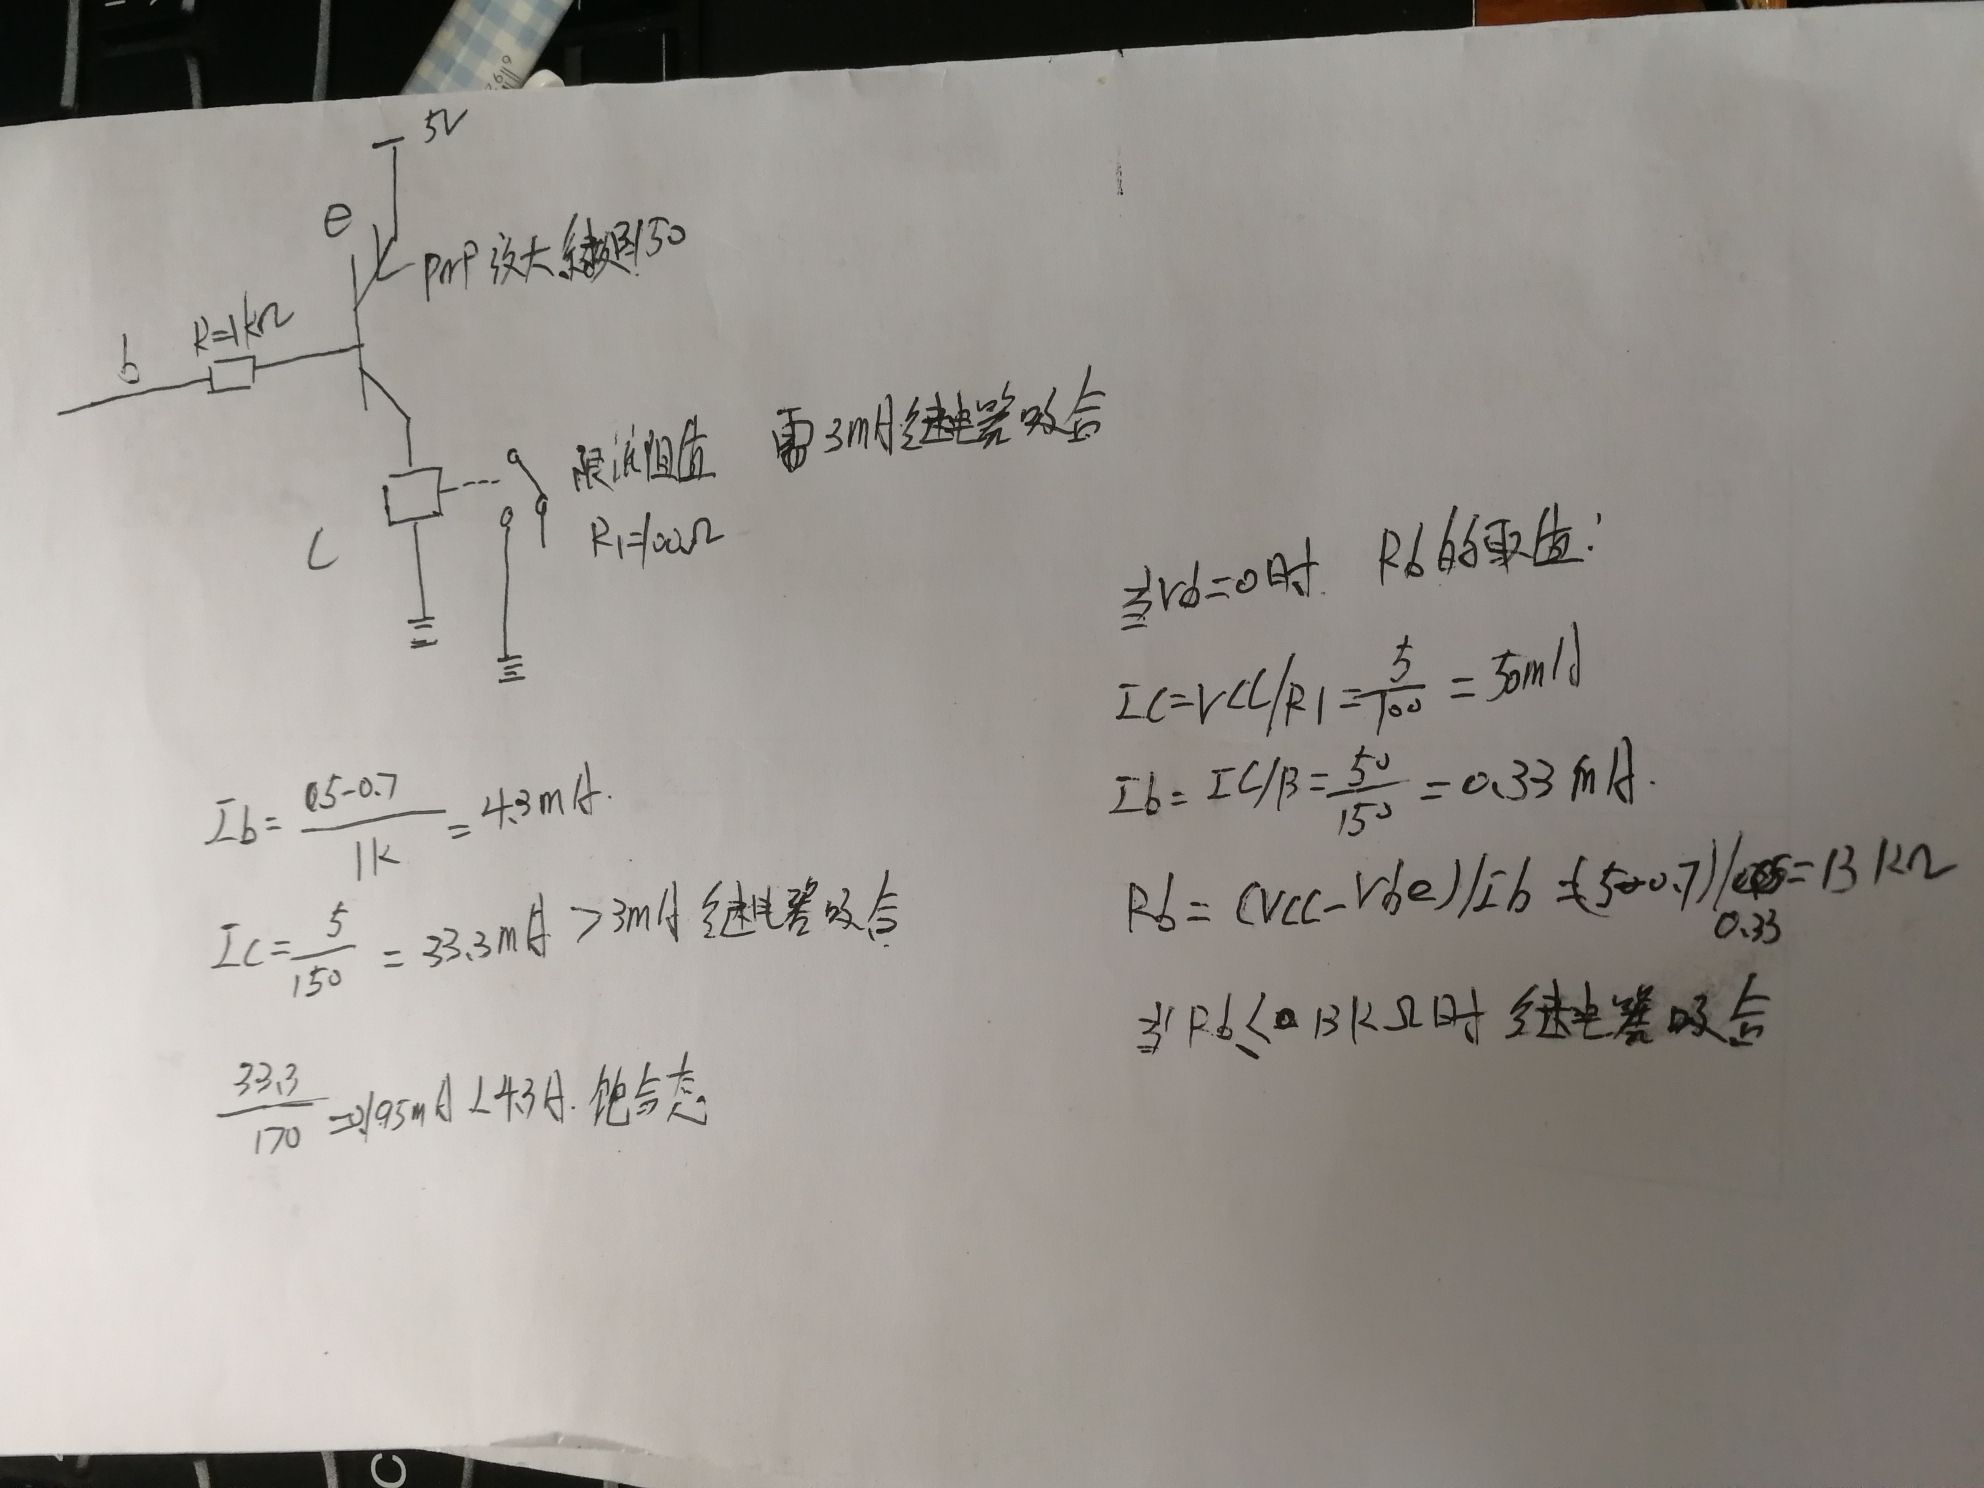 5V
e
PnP 放大系数β150
b
R=1KΩ
限流阻值 需3mA继电器吸合
R1=100Ω
C
Ib=5-0.7/1K=4.3mA.
IC=5/150=33.3mA>3mA 继电器吸合
33.3/170=0.195mA<4.3A. 饱合态
当Vb=0时. Rb的取值:
IC=VCC/R1=5/100=50mA
Ib=IC/B=50/150=0.33mA.
Rb=(VCC-Vbe)/Ib=(5-0.7)/0.33=13KΩ
当Rb≤13KΩ时 继电器吸合
C